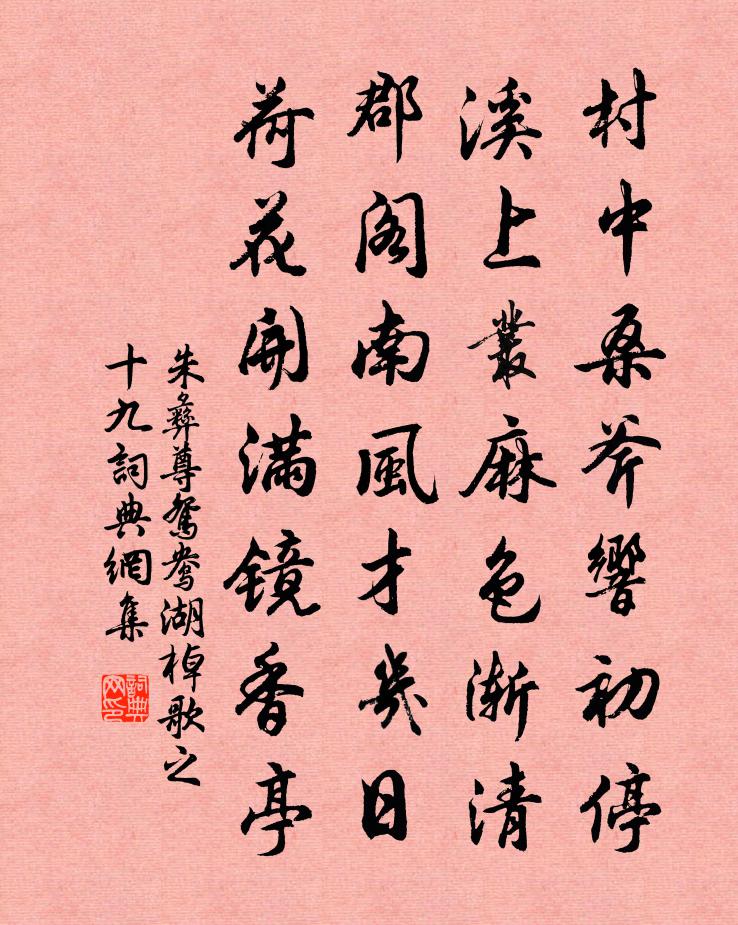 村中桑斧響初停
溪上叢麻色漸清
郡閣南風才幾日
荷花開滿鏡香亭
朱彝尊鴛鴦湖棹歌之
十九詞典網集
詞典网印